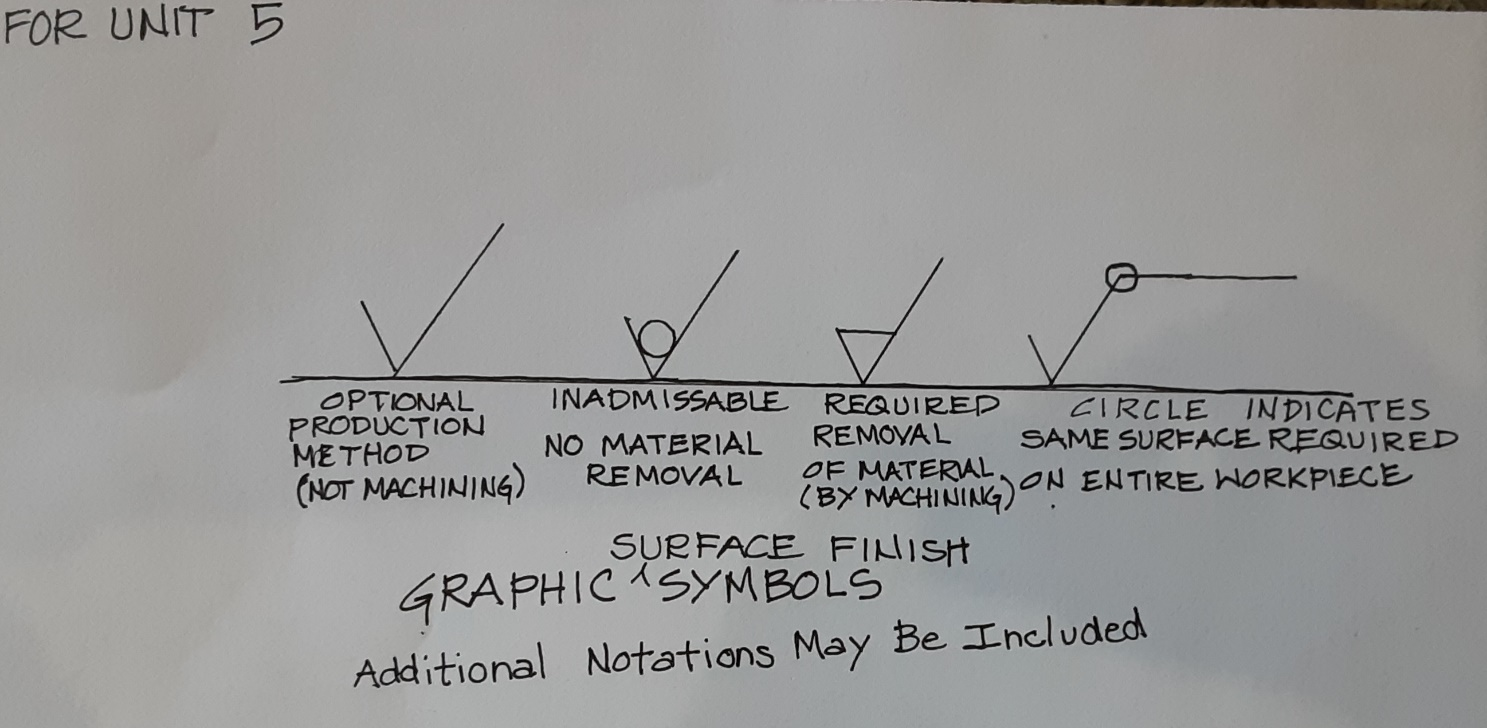 FOR UNIT 5
OPTIONAL
PRODUCTION
METHOD
(NOT MACHINING)
INADMISSABLE
NO MATERIAL
REMOVAL
REQUIRED
REMOVAL
OF MATERIAL
(BY MACHINING)
CIRCLE INDICATES
SAME SURFACE REQUIRED
ON ENTIRE WORKPIECE
SURFACE FINISH
GRAPHIC SYMBOLS
Additional Notations May Be Included